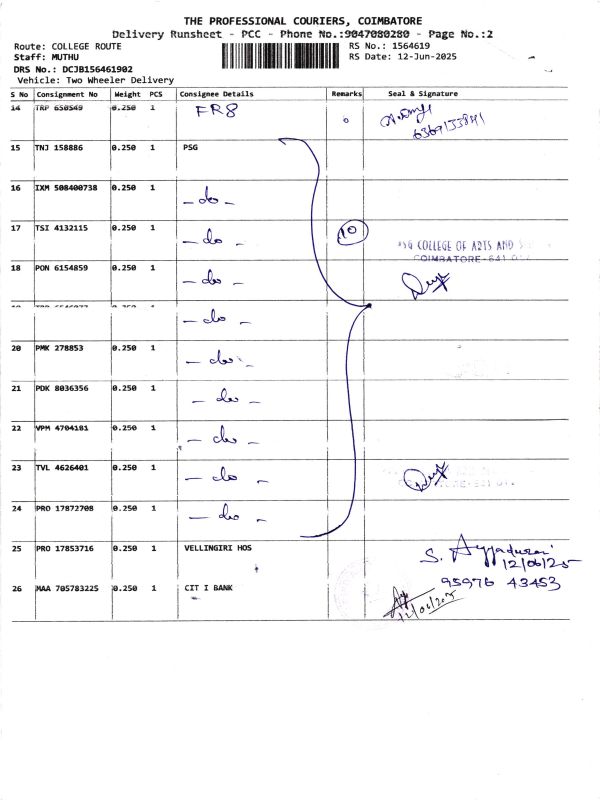 THE PROFESSIONAL COURIERS, COIMBATORE
Delivery Runsheet - PCC - Phone No.:9047080280 - Page No.:2
Route: COLLEGE ROUTE RS No.: 1564619
Staff: MUTHU RS Date: 12-Jun-2025
DRS No.: DCJB156461902
Vehicle: Two Wheeler Delivery
S No Consignment No Weight PCS Consignee Details Remarks Seal & Signature
14 TRP 650549 0.250 1 FR8
6369133841
15 TNJ 158886 0.250 1 PSG
16 IXM 508400738 0.250 1 - do -
17 TSI 4132115 0.250 1 - do - 10 PSG COLLEGE OF ARTS AND
COIMBATORE-641
18 PON 6154859 0.250 1 - do -
- do -
20 PMK 278853 0.250 1 - do -
21 PDK 8036356 0.250 1 - do -
22 VPM 4704181 0.250 1 - do -
23 TVL 4626401 0.250 1 - do -
24 PRO 17872708 0.250 1 - do -
25 PRO 17853716 0.250 1 VELLINGIRI HOS S. Ayyadurai
12/06/25
95976 43453
26 MAA 705783225 0.250 1 CIT I BANK
12/06/2025